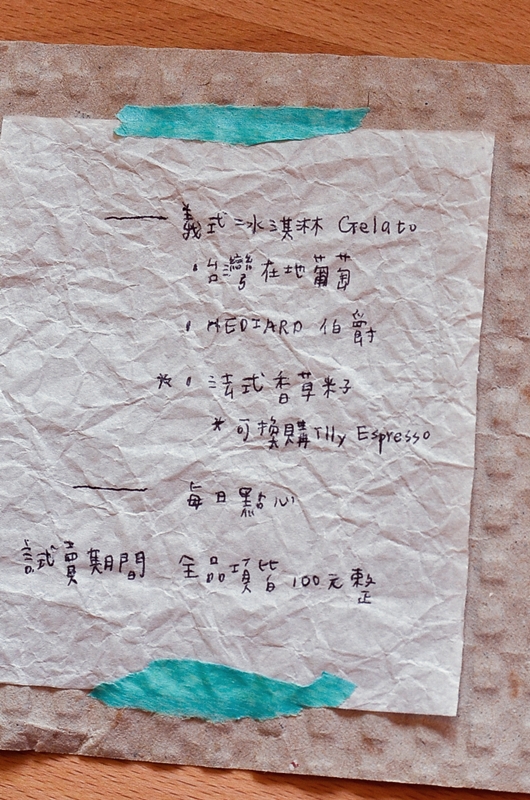 義式冰淇淋 Gelato
• 台灣在地葡萄
• HEDIARD 伯爵
* • 法式香草籽
* 可換購 Illy Espresso
每日點心
試賣期間 全品項皆100元整